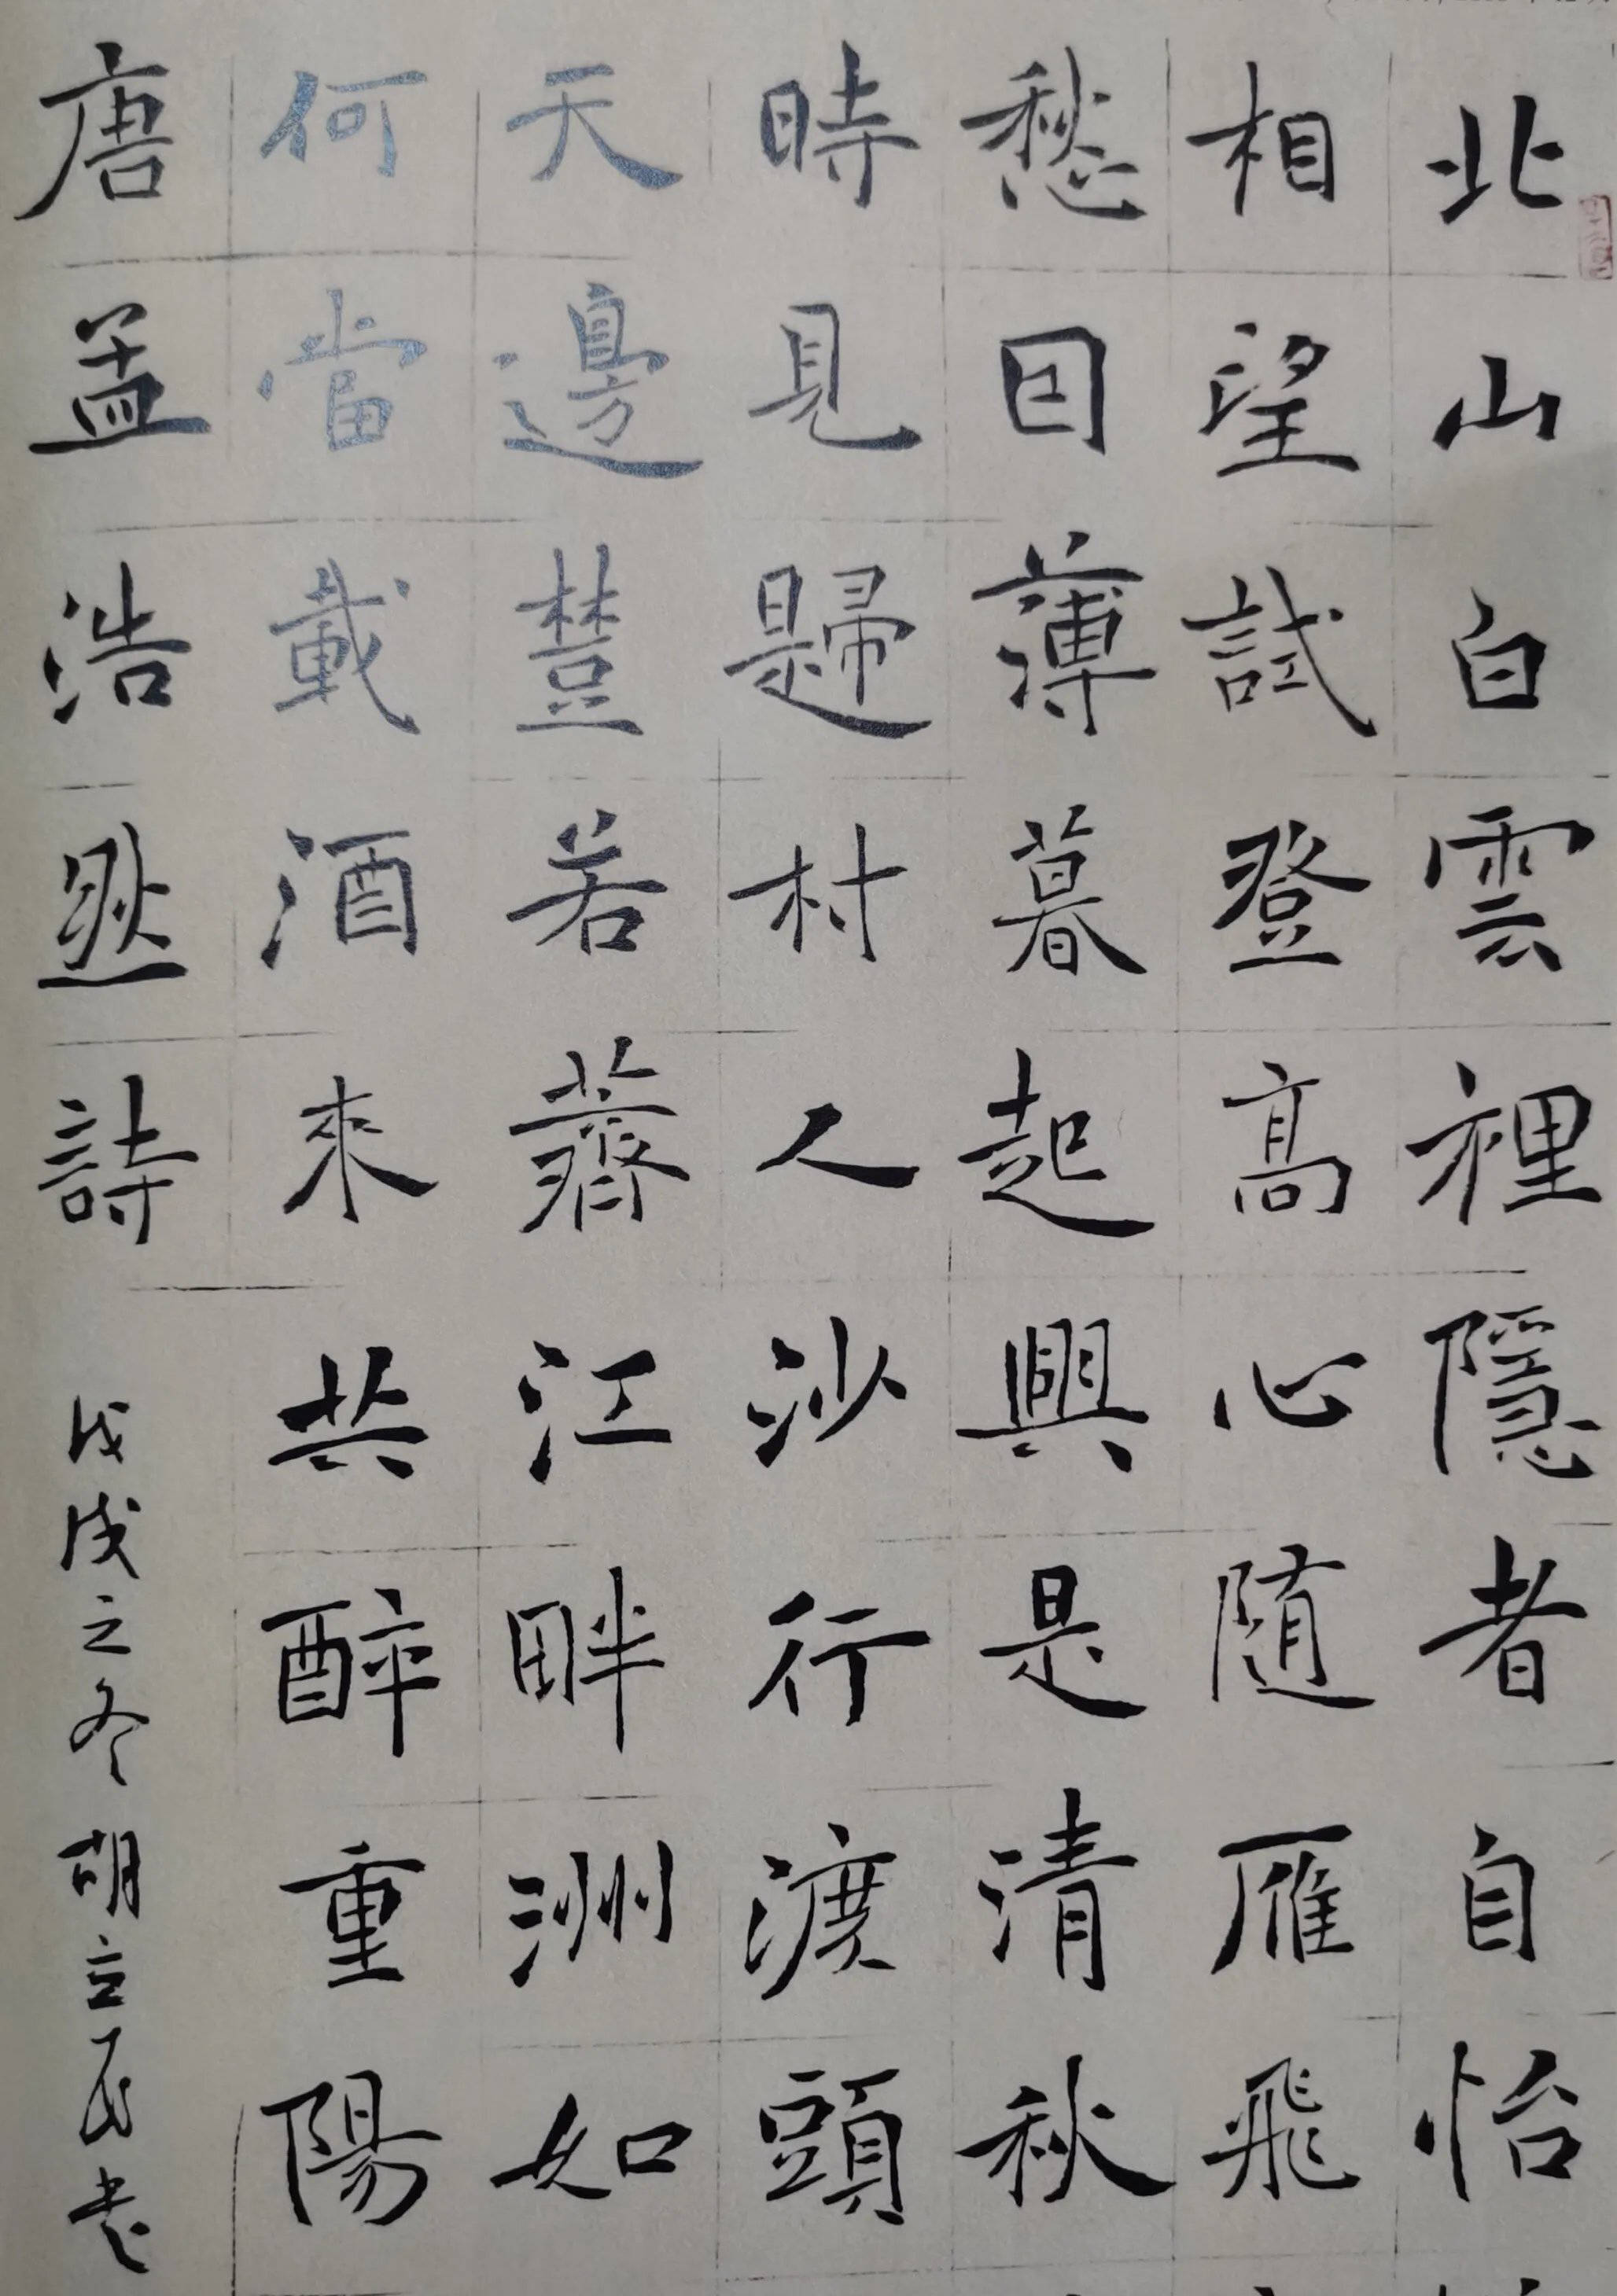 北山白雲裡隱者自怡
相望試登高心隨雁飛
愁因薄暮起興是清秋
時見歸村人沙行渡頭
天邊樹若薺江畔洲如
何當載酒來共醉重陽
唐孟浩然詩
戊戌之冬胡立民書